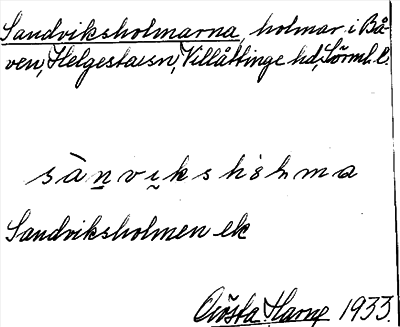 Sandviksholmarna, holmar i Bå-
ven, Helgesta sn, Villåttinge hd, Sörml. l.
sànviksholma
Sandviksholmen ek
Gösta Harne 1933.